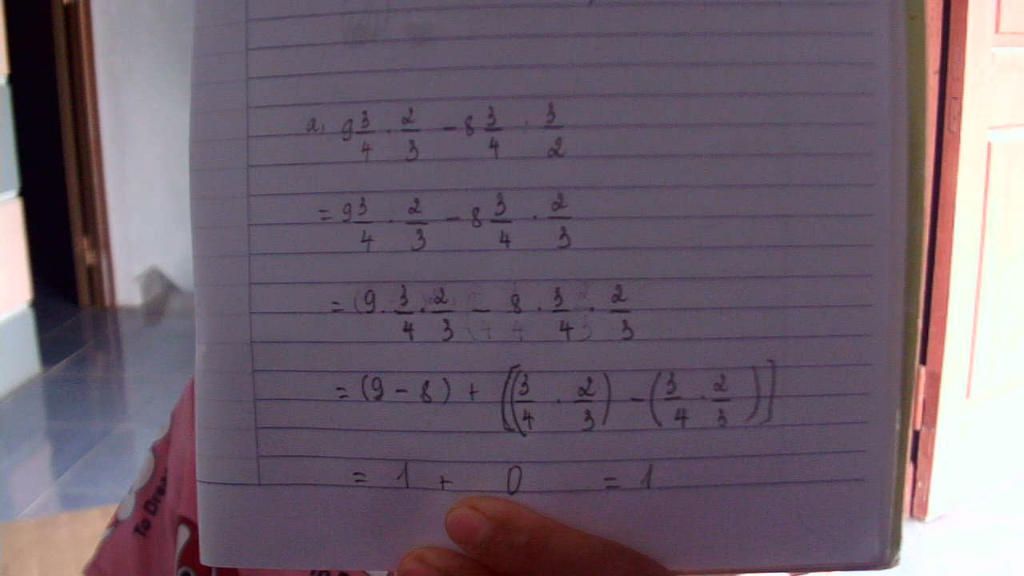 a, 9 3/4 . 2/3 - 8 3/4 . 3/2
= 9 3/4 . 2/3 - 8 3/4 . 2/3
= (9 . 3/4 . 2/3 - 8 . 3/4 . 2/3
= (9 - 8) + [(3/4 . 2/3) - (3/4 . 2/3)]
= 1 + 0 = 1
To Dre